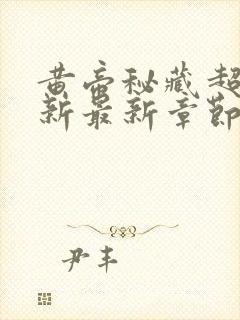 黄帝秘藏超
新最新章節
尹丰